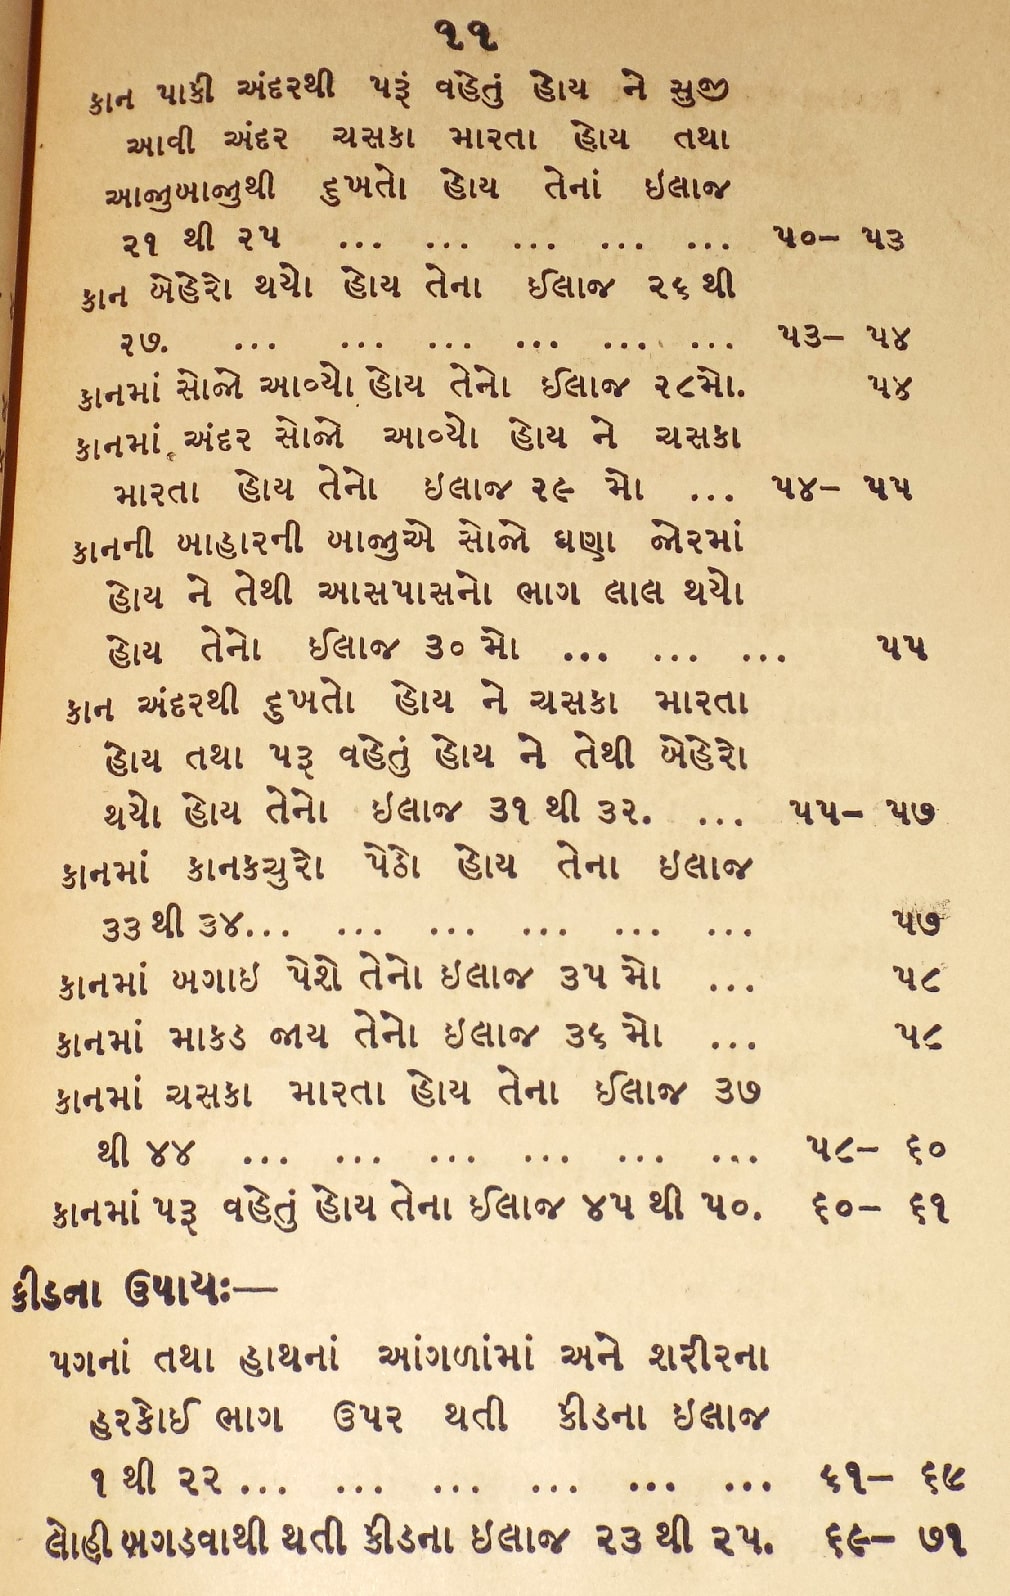 ૧૧
કાન પાકી અંદરથી પરૂં વહેતું હોય ને સુજી
આવી અંદર ચસકા મારતા હોય તથા
આજુબાજુથી દુખતો હોય તેનાં ઇલાજ
૨૧ થી ૨૫ ... ... ... ... ... ૫૦– ૫૩
કાન બેહેરો થયો હોય તેના ઈલાજ ૨૬ થી
૨૭. ... ... ... ... ... ... ૫૩– ૫૪
કાનમાં સોજો આવ્યો હોય તેનો ઈલાજ ૨૮મો. ૫૪
કાનમાં અંદર સોજો આવ્યો હોય ને ચસકા
મારતા હોય તેનો ઇલાજ ૨૯ મો ... ૫૪– ૫૫
કાનની બાહારની બાજુએ સોજો ઘણા જોરમાં
હોય ને તેથી આસપાસનો ભાગ લાલ થયો
હોય તેનો ઈલાજ ૩૦ મો ... ... ... ૫૫
કાન અંદરથી દુખતો હોય ને ચસકા મારતા
હોય તથા પરૂ વહેતું હોય ને તેથી બેહેરો
થયો હોય તેનો ઇલાજ ૩૧ થી ૩૨. ... ૫૫– ૫૭
કાનમાં કાનકચુરો પેઠો હોય તેના ઇલાજ
૩૩ થી ૩૪... ... ... ... ... ... ૫૭
કાનમાં બગાઇ પેશે તેનો ઇલાજ ૩૫ મો ... ૫૮
કાનમાં માકડ જાય તેનો ઇલાજ ૩૬ મો ... ૫૮
કાનમાં ચસકા મારતા હોય તેના ઈલાજ ૩૭
થી ૪૪ ... ... ... ... ... ... ૫૮– ૬૦
કાનમાં પરૂ વહેતું હોય તેના ઈલાજ ૪૫ થી ૫૦. ૬૦– ૬૧
કીડના ઉપાયઃ—
પગનાં તથા હાથનાં આંગળાંમાં અને શરીરના
હરકોઈ ભાગ ઉપર થતી કીડના ઇલાજ
૧ થી ૨૨ ... ... ... ... ... ... ૬૧– ૬૯
લોહી બગડવાથી થતી કીડના ઇલાજ ૨૩ થી ૨૫. ૬૯– ૭૧